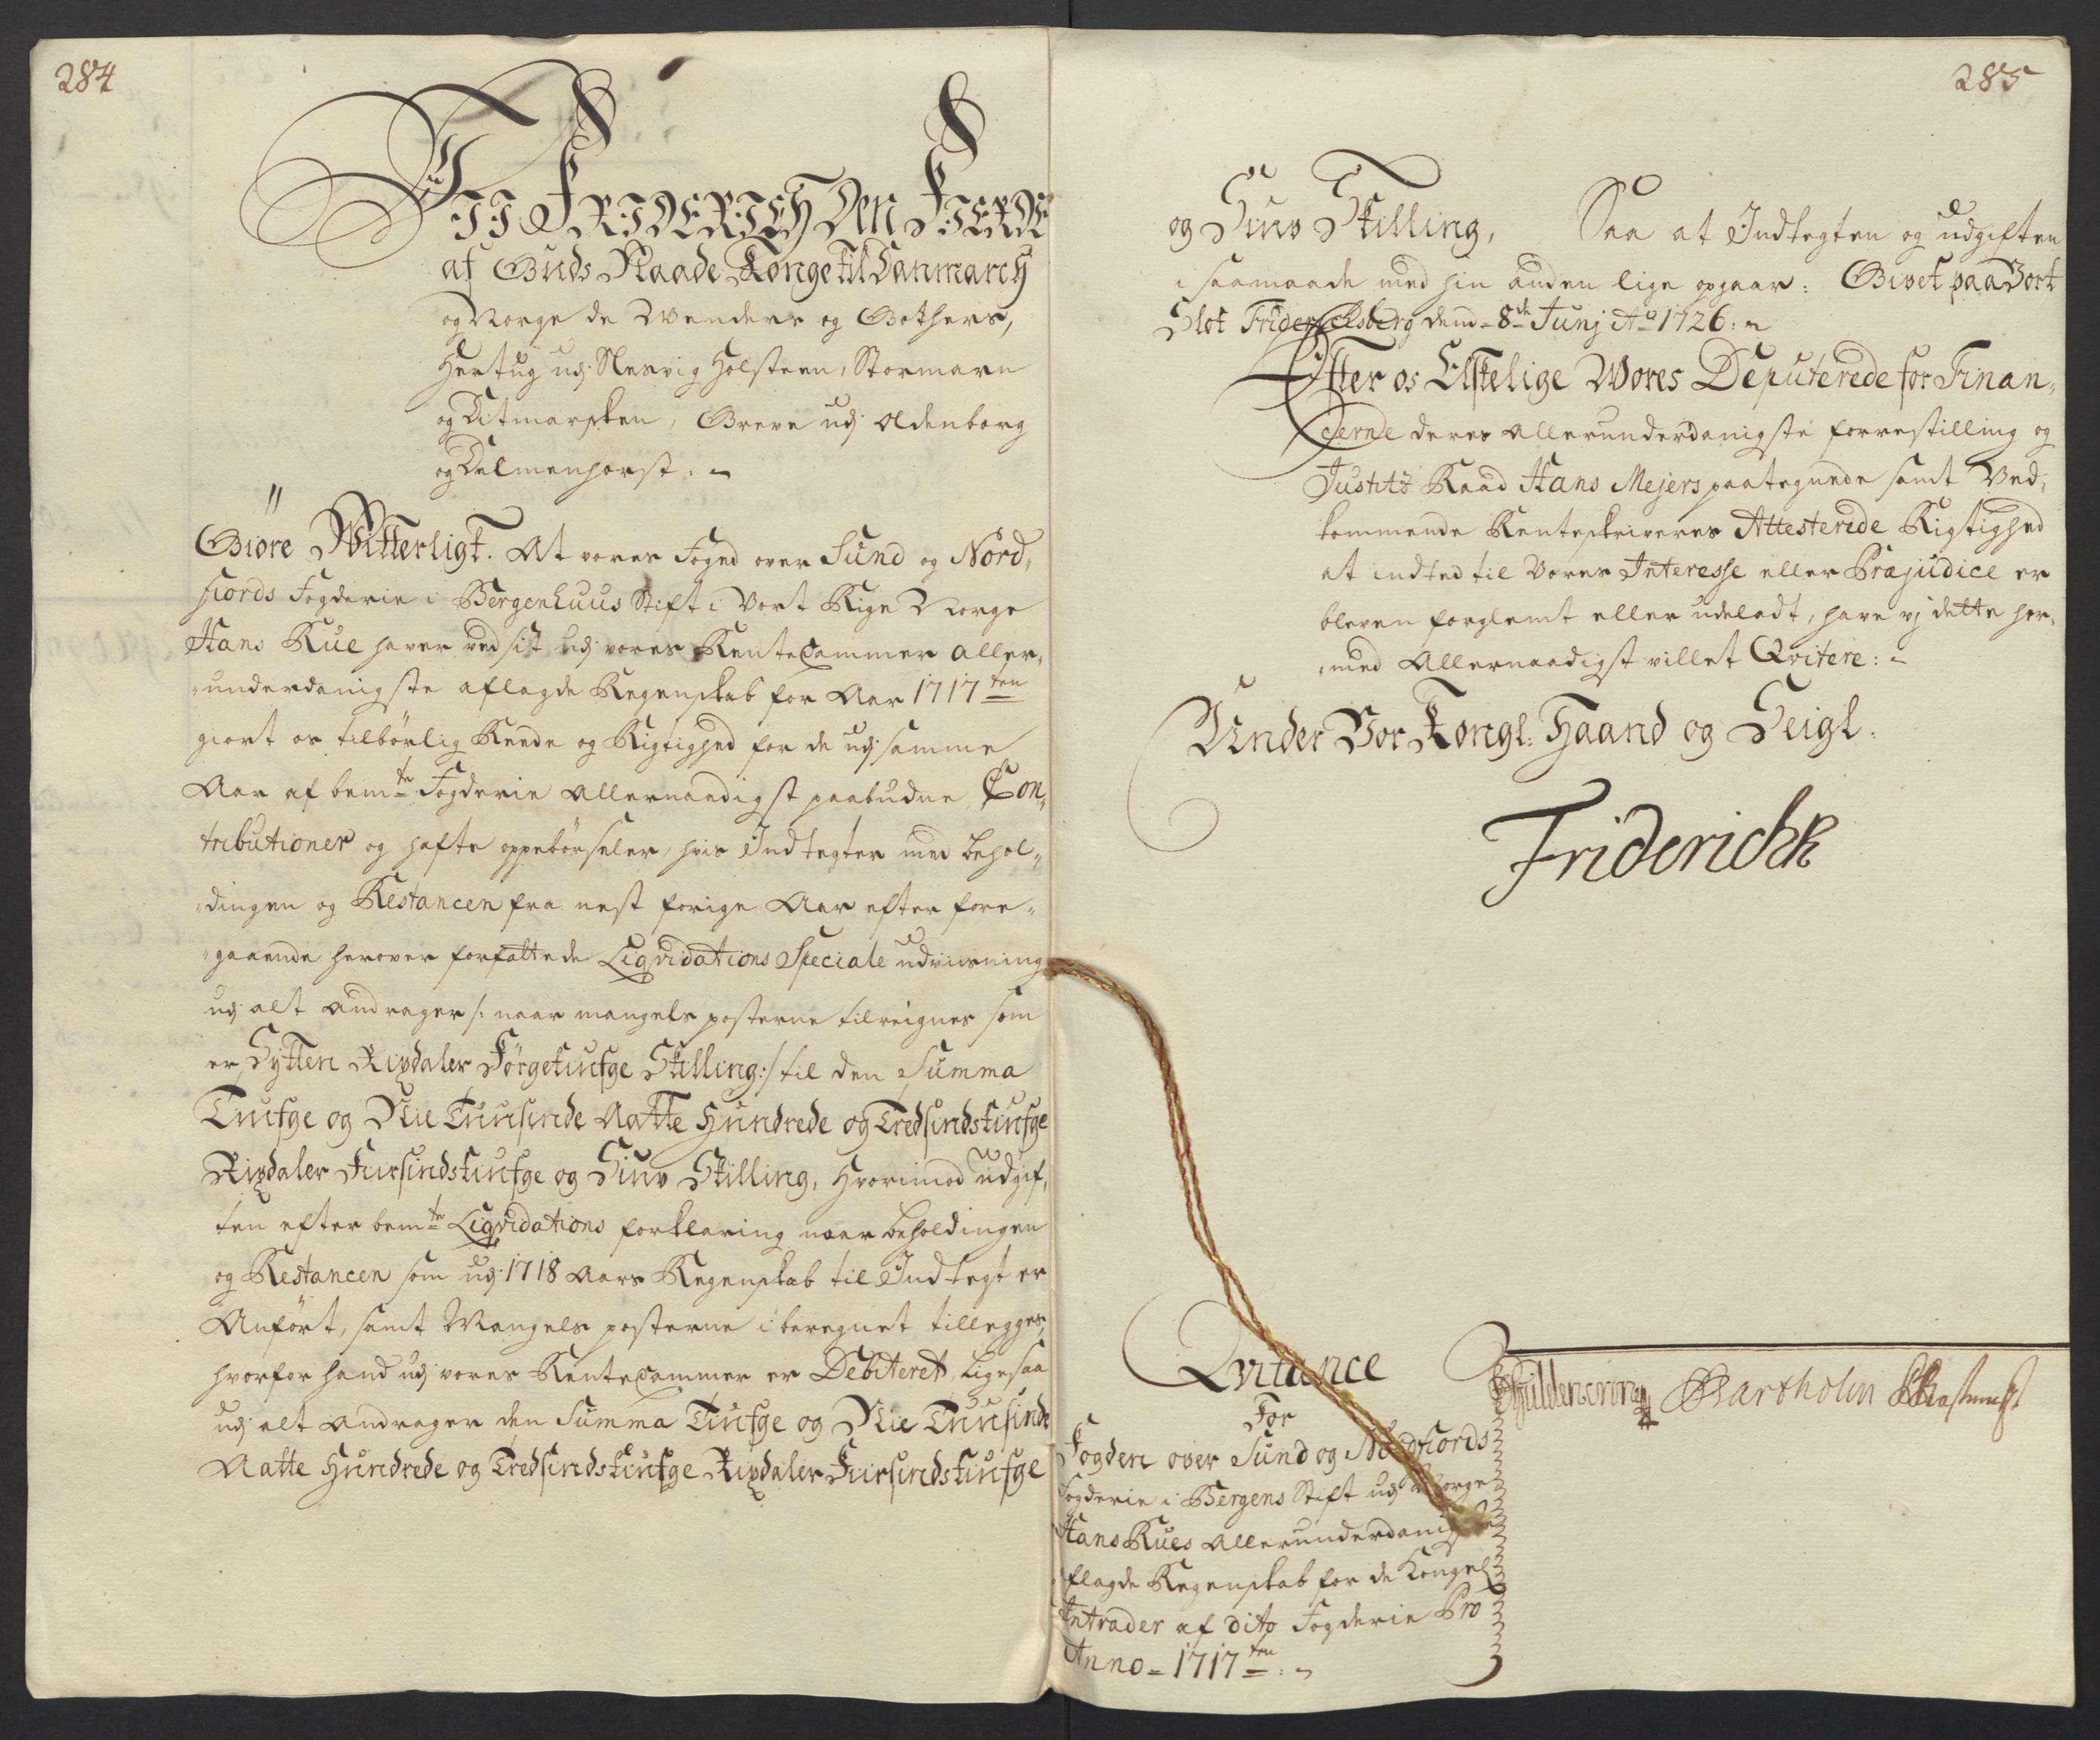 284
VII FRIDERICH Den FIERDE
af Guds Naade Konge til Danmarch
og Norge de Wenders og Gothers,
Hertug udj Slesvig Holsteen, Stormarn
og Ditmarsken, Greve udj Oldenborg
og Delmenhorst:
Giöre Witterligt. At vores Foged over Sund og Nord„
fiords Fogderie i Bergenhuus Stift i Vort Rige Norge
Hans Rue haver ved sit udj vores RenteCammer aller„
„underdanigste aflagde Regenskab for Aar 1717ten
giort os tilbörlig Reede og Rigtighed for de udj samme
Aar af bemte Fogderie Allernaadigst paabudne Con„
tributioner og hafte oppebörseler, hvis Indtegter med behol„
„dingen og Restancen fra nest forige Aar efter fore„
„gaaende herover forfattede Liqvidations Speciale udviisning
udj alt andrager /: naar mangels posterne tilreignes som
er Sytten Rixdaler Förgetiufge Skilling :/ til den Summa
Tiufge og Nie Tuusinde Aatte Hundrede og Tredsindstiufge
Rixdaler Fiirsindstiufge og Siuv Skilling, Hvorimod udgif„
ten efter bemte Liqvidations forklaring naar beholdingen
og Restancen som udj 1718 Aars Regenskab til Indtegt er
Anfört, samt Mangels posterne iberegnet tillegges,
hvorfor hand udj vores RenteCammer er Debiteret, ligesaa
udj alt andrager den Summa Tiufge og Nie Tuusinde
Aatte Hundrede og Tredsindstiufge Rixdaler Fiirsindstiufge
285
og Siuv Skilling, Saa at Indtegten og udgiften
i saamaade med hin anden lige opgaar: Givet paa Vort
Slot Friderichsberg dend 8de Junj Ao 1726:
Efter os Elskelige Wores Deputerede for Finan„
cerne deres allerunderdanigste forrestilling og
Justitz Raad Hans Mejers paategnede samt Ved„
kommende Renteskriveres Attesterede Rigtighed
at indted til Vores Interesse eller Præjudice er
bleven forglemt eller udeladt, have vj dette her„
„med Allernaadigst villet Qvitere:
Under Vor Kongl: Haand og Seigl.
Friderich R
Qvitance
For
Fogden over Sund og Nordfiords
Fogderie i Bergens Stift udj Norge
Hans Rues Allerunderdanigste
aflagde Regenskab for de Kongel
Intrader af dito Fogderie Pro
Anno 1717ten
Güldencrone Bartholin